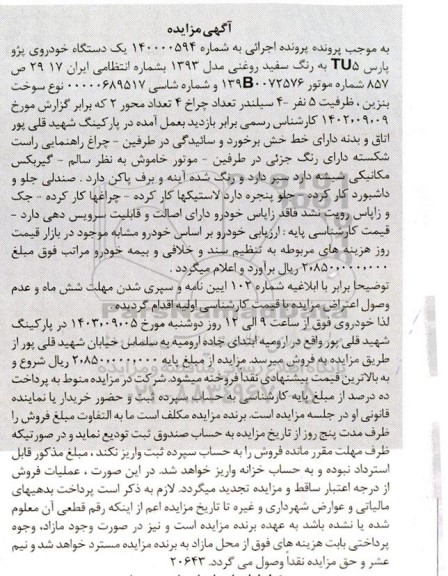 آگهی مزایده
به موجب پرونده پرونده اجرائی به شماره ۱۴۰۰۰۰۵۹۴ یک دستگاه خودروی پژو
پارس TU۵ به رنگ سفید روغنی مدل ۱۳۹۳ بشماره انتظامی ایران ۱۷ ۲۹ ص
۸۵۷ شماره موتور ۱۳۹B۰۰۷۲۵۷۶ و شماره شاسی ۰۰۰۰۰۶۸۹۵۱۷ نوع سوخت
بنزین ، ظرفیت ۵ نفر -۴ سیلندر تعداد چراغ ۴ تعداد محور ۲ که برابر گزارش مورخ
۱۴۰۲۰۹۰۹ کارشناس رسمی برابر بازدید بعمل آمده در پارکینگ شهید قلی پور
اتاق و بدنه دارای خط خش برخورد و سائیدگی در طرفین - چراغ راهنمایی راست
شکسته دارای رنگ جزئی در طرفین - موتور خاموش به نظر سالم - گیربکس
مکانیکی شیشه دارد سپر دارد و رنگ شده آینه و برف پاکن دارد . صندلی جلو و
داشبورد کار کرده - جلو پنجره دارد لاستیکها کار کرده - چراغها کار کرده - جک
و زاپاس رویت نشد فاقد زاپاس خودرو دارای اصالت و قابلیت سرویس دهی دارد -
قیمت کارشناسی پایه : ارزیابی خودرو بر اساس خودرو مشابه موجود در بازار قیمت
روز هزینه های مربوطه به تنظیم سند و خلافی و بیمه خودرو مراتب فوق مبلغ
۲۰۸۵۰۰۰۰۰۰۰۰ ریال برآورد و اعلام میگردد .
توضیحا برابر با ابلاغیه شماره ۱۰۲ ایین نامه و سپری شدن مهلت شش ماه و عدم
وصول اعتراض مزایده با قیمت کارشناسی اولیه اقدام گردیده.
لذا خودروی فوق از ساعت ۹ الی ۱۲ روز دوشنبه مورخ ۱۴۰۳۰۹۰۵ در پارکینگ
شهید قلی پور واقع در ارومیه ابتدای جاده ارومیه به سلماس خیابان شهید قلی پور از
طریق مزایده به فروش میرسد. مزایده از مبلغ پایه ۲۰۸۵۰۰۰۰۰۰۰ ریال شروع و
به بالاترین قیمت پیشنهادی نقدا فروخته میشود. شرکت در مزایده منوط به پرداخت
ده درصد از مبلغ پایه کارشناسی به حساب سپرده ثبت و حضور خریدار یا نماینده
قانونی او در جلسه مزایده است. برنده مزایده مکلف است ما به التفاوت مبلغ فروش را
ظرف مدت پنج روز از تاریخ مزایده به حساب صندوق ثبت تودیع نماید و در صورتیکه
ظرف مهلت مقرر مانده فروش را به حساب سپرده ثبت واریز نکند ، مبلغ مذکور قابل
استرداد نبوده و به حساب خزانه واریز خواهد شد. در این صورت ، عملیات فروش
از درجه اعتبار ساقط و مزایده تجدید میگردد. لازم به ذکر است پرداخت بدهیهای
مالیاتی و عوارض شهرداری و غیره تا تاریخ مزایده اعم از اینکه رقم قطعی آن معلوم
شده یا نشده باشد به عهده برنده مزایده است و نیز در صورت وجود مازاد، وجوه
پرداختی بابت هزینه های فوق از محل مازاد به برنده مزایده مسترد خواهد شد و نیم
عشر و حق مزایده نقداً وصول می گردد. ۲۰۶۴۳